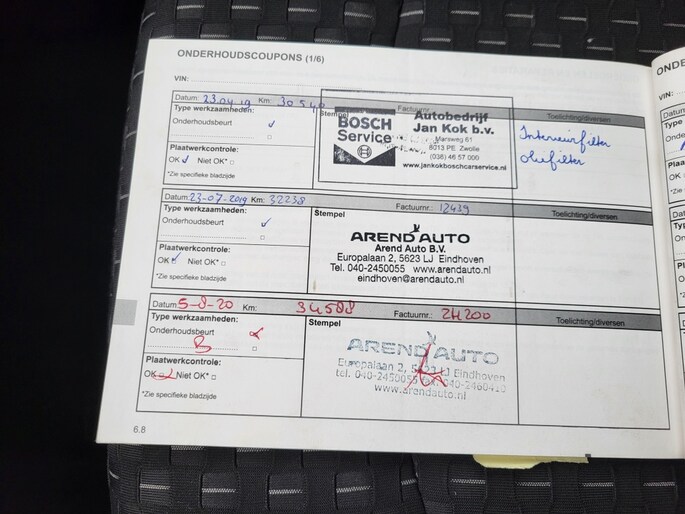 ONDERHOUDSCOUPONS (1/6)
VIN:
Datum: 23.04.19 Km: 30540 Factuurnr.:
Type werkzaamheden: Stempel Toelichting/diversen
Onderhoudsbeurt ✓
Plaatwerkcontrole:
OK ✓ Niet OK*
*Zie specifieke bladzijde
BOSCH
Service
Autobedrijf
Jan Kok b.v.
Marsweg 61
8013 PE Zwolle
(038) 46 57 000
www.jankokboschcarservice.nl
Interieurfilter
oliefilter
Datum: 23-07-2019 Km: 32238 Factuurnr.: 12439
Type werkzaamheden: Stempel Toelichting/diversen
Onderhoudsbeurt ✓
Plaatwerkcontrole:
OK ✓ Niet OK*
*Zie specifieke bladzijde
AREND AUTO
Arend Auto B.V.
Europalaan 2, 5623 LJ Eindhoven
Tel. 040-2450055 www.arendauto.nl
eindhoven@arendauto.nl
Datum: 5-8-20 Km: 34588 Factuurnr.: 24200
Type werkzaamheden: Stempel Toelichting/diversen
Onderhoudsbeurt
B
Plaatwerkcontrole:
OK Niet OK*
*Zie specifieke bladzijde
AREND AUTO
Europalaan 2, 5623 LJ Eindhoven
tel. 040-2450055 040-2460410
www.arendauto.nl
6.8
ONDE
VIN:
Datum
Type
Onder
Plaat
OK
*Zie s
Datum
Type
Onde
Plaa
OK
*Zie
Datu
Typ
Ond
Pla
OK
*Zie